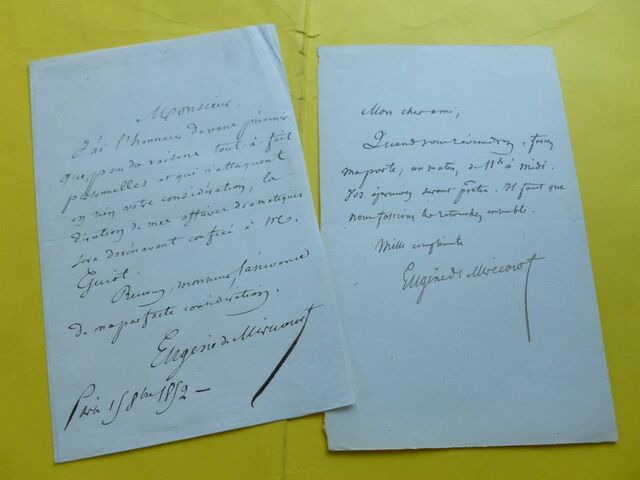 Monsieur,
J'ai l'honneur de vous prévenir
que, pour de raisons tout-à-fait
personnelles et qui n'attaquent
en rien votre considération, la
direction de mes affaires dramatiques
sera dorénavant confiée à
Guiot.
Recevez, monsieur, l'assurance
de ma parfaite considération.
Eugène de Mirecourt
Paris 15 8bre 1852 —
Mon cher ami,
Quand vous reviendrez, forcez
ma porte, un matin, de 11h à midi.
Vos épreuves seront prêtes. Il faut que
nous fassions les retouches ensemble.
Mille compliments
Eugène de Mirecourt